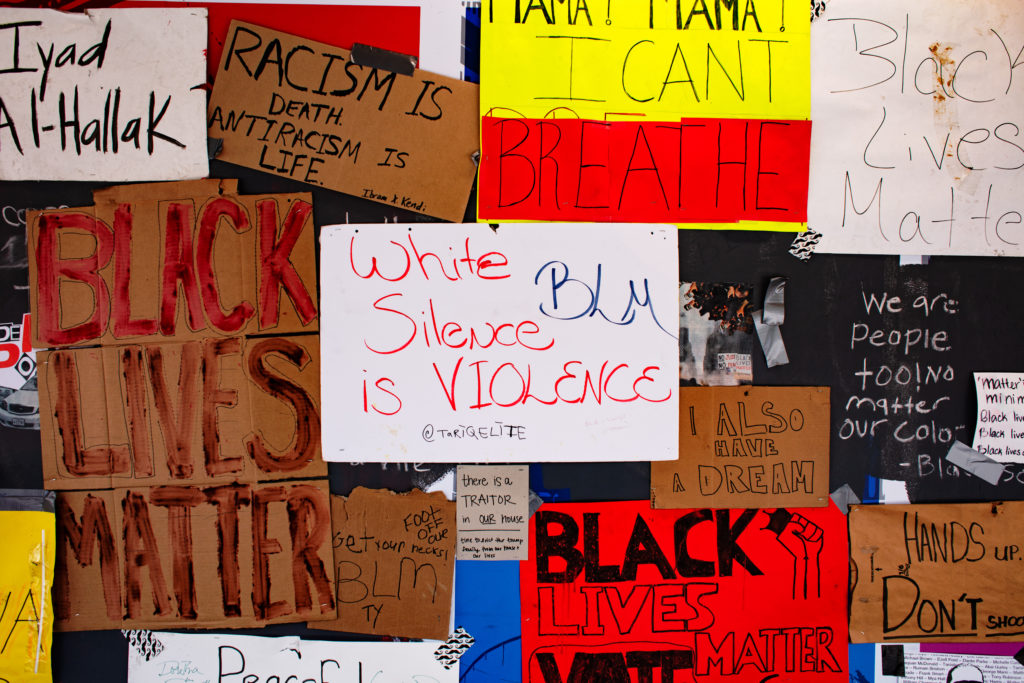 Iyad
Al-Hallak
RACISM IS
DEATH.
ANTIRACISM IS
LIFE.
Ibram X Kendi
MAMA! MAMA!
I CANT
BREATHE
Black
Lives
Matte
BLACK
LIVES
MATTER
White
Silence
is VIOLENCE
BLM
@TARIQELITE
We are
People
too!no
matter
our Colo
"Matter"
minim
Black live
Black live
Black lives
I ALSO
HAVE
A DREAM
FOOT
OFF
OUR
Get your necks!
BLM
TY
there is a
TRAITOR
in OUR house
time to evict the trump
family from our house &
our lives
BLACK
LIVES
MATTER
VOTE
HANDS UP.
DON'T SHOO
Peaceful